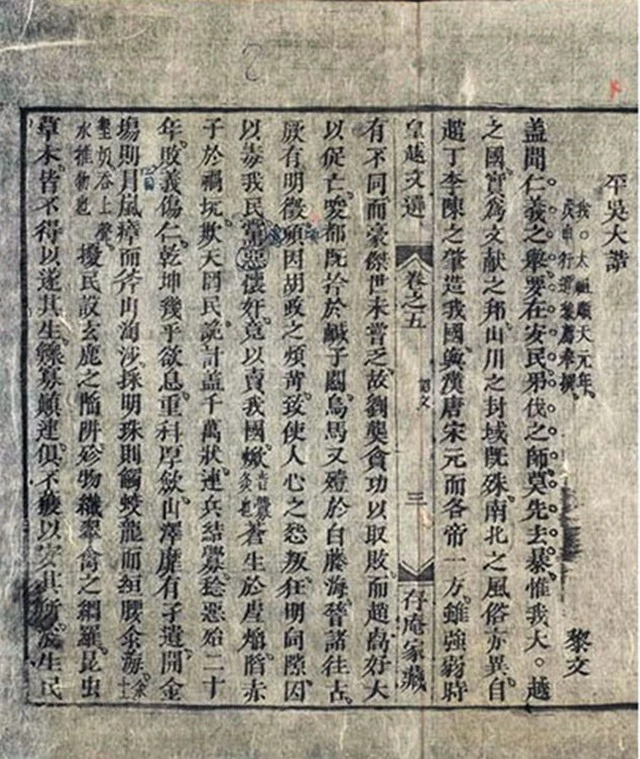 平吳大誥
我。太祖順天元年。
行遣黎廌奉撰。
黎文
蓋聞仁義之舉。要在安民。弔伐之師。莫先去暴。惟我大。越
之國。實爲文献之邦。山川之封域既殊。南北之風俗亦異。自
趙丁李陳之肇造我國。與漢唐宋元而各帝一方。雖強弱時
皇越文選 卷之五 誥文 三 存庵家藏
有不同。而豪傑世未嘗乏。故劉龑貪功以取敗。而趙卨好大
以促亡。唆都既擒於鹹子關。烏馬又殪於白藤海。諸往古。
厥有明徵。頃因胡政之煩苛。致使人心之怨叛。狂明伺隙。因
以毒我民。黨惡懷奸。竟以賣我國。焮蒼生於虐焰。陷赤
子於禍坑。欺天罔民。詭計蓋千萬狀。連兵結釁。稔惡殆二十
年。敗義傷仁。乾坤幾乎欲息。重科厚歛。山澤靡有孑遺。開金
塲則冒嵐瘴而斧山淘沙。採明珠則觸蛟龍而絙腰汆海。
吞上聲。
水推物也
擾民設玄鹿之陷阱。殄物織翠禽之網羅。昆虫
草木。皆不得以遂其生。鰥寡顛連。俱不獲以安其所。浚生民